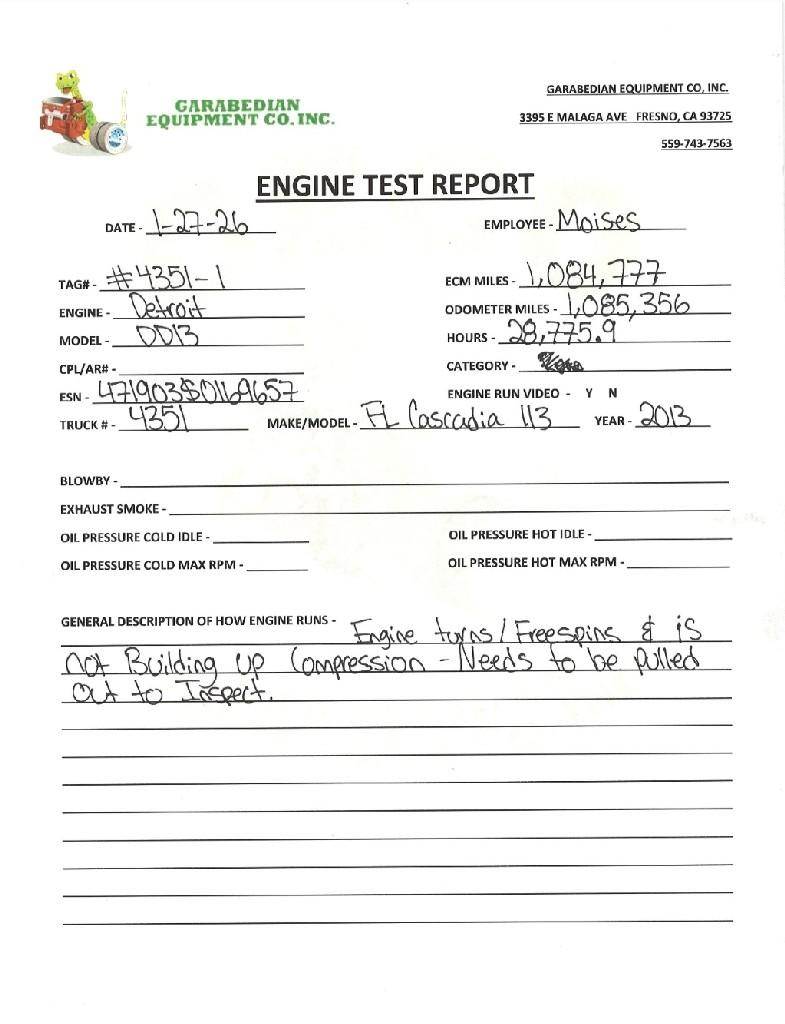 GARABEDIAN
EQUIPMENT CO. INC.
GARABEDIAN EQUIPMENT CO, INC.
3395 E MALAGA AVE FRESNO, CA 93725
559-743-7563
ENGINE TEST REPORT
DATE - 1-27-26
EMPLOYEE - Moises
TAG# - #4351-1
ECM MILES - 1,084,777
ENGINE - Detroit
ODOMETER MILES - 1,085,356
MODEL - DD13
HOURS - 28,775.9
CPL/AR# -
CATEGORY -
ESN - 471903S0169657
ENGINE RUN VIDEO - Y N
TRUCK # - 4351
MAKE/MODEL - FL Cascadia 113
YEAR - 2013
BLOWBY -
EXHAUST SMOKE -
OIL PRESSURE COLD IDLE -
OIL PRESSURE HOT IDLE -
OIL PRESSURE COLD MAX RPM -
OIL PRESSURE HOT MAX RPM -
GENERAL DESCRIPTION OF HOW ENGINE RUNS - Engine turns/Freespins & is
not Building up Compression - Needs to be pulled
Out to Inspect.